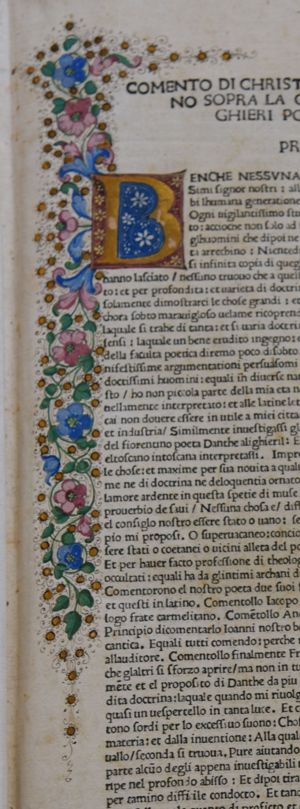 COMENTO DI CHRIST
NO SOPRA LA C
GHIERI PO
PR
BENCHE NESSVNA
Simi signor nostri : all
bi lhumana generatione
Ogni uigilantissimo stu
to: accioche non solo ad
glhuomini che dipoi ne
ti arrechino : Niented
si infinita copia di queg
hanno lasciato / nessuno truouo che a quel
to: et per profondita: et uarieta di doctrin
solamente dimostrarci le chose grandi : et
chora sobto marauiglioso uelame ricoprend
laquale si trahe di tanta: et si uaria doctrin
sensi : laquale un bene erudito ingegno: e
della faculta poetica diremo poco disobto
nifestissime argumentationi persuasomi
doctissimi huomini: equali in diuerse na
sto / ho non piccola parte della mia eta n
nellamente interpretato: et alle latine let
cai non douere essere in utile a miei citta
et industria / Similmente inuestigassi gl
del fiorentino poeta Danthe alighieri: E
eltoscano intoscana interpretassi. Impre
le chose: et maxime per sua nouita a qual
me ne di doctrina ne deloquentia ornato
lamore ardente in questa spetie di muse
prouerbio de sauii / Nessuna chosa e/ diff
el consiglo nostro essere stato o uano: se
pio mi proposi. O superuacaneo: concio
fere stati o coetanei o uicini alleta del po
Et per hauer facto professione di theolog
occultati : equali ha da glintimi archani d
Comentorono el nostro poeta due suoi f
et questi in latino. Comentollo Iacopo
logo frate carmelitano. Comẽtollo An
Principio dicomentarlo Ioanni nostro b
cantica. Equali tutti comendo: perche n
allauditore. Comentollo finalmente Fr
che glaltri si sforzo aprire / ma non in tu
mẽte et el proposito di Danthe da piu
dita doctrina: laquale quando mi riuolg
quasi un uespertello in tanta luce. Et c
tono sordi per lo excessiuo suono : Chos
materia: et dalla inuentione : Alla qual
uallo / seconda si truoua. Pure aiutando
parte alcũo degli appena inuestigabili
ripe nel profondo abisso : Et dipoi tirat
per camino difficile condocto. Et tan